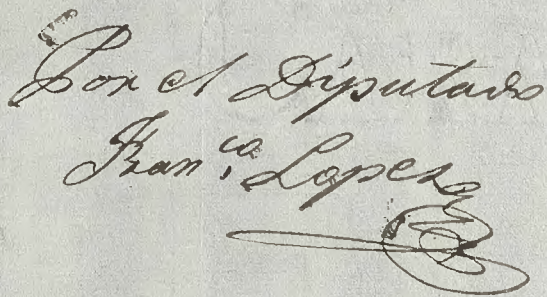 Por el Diputado
Fran.co Lopez